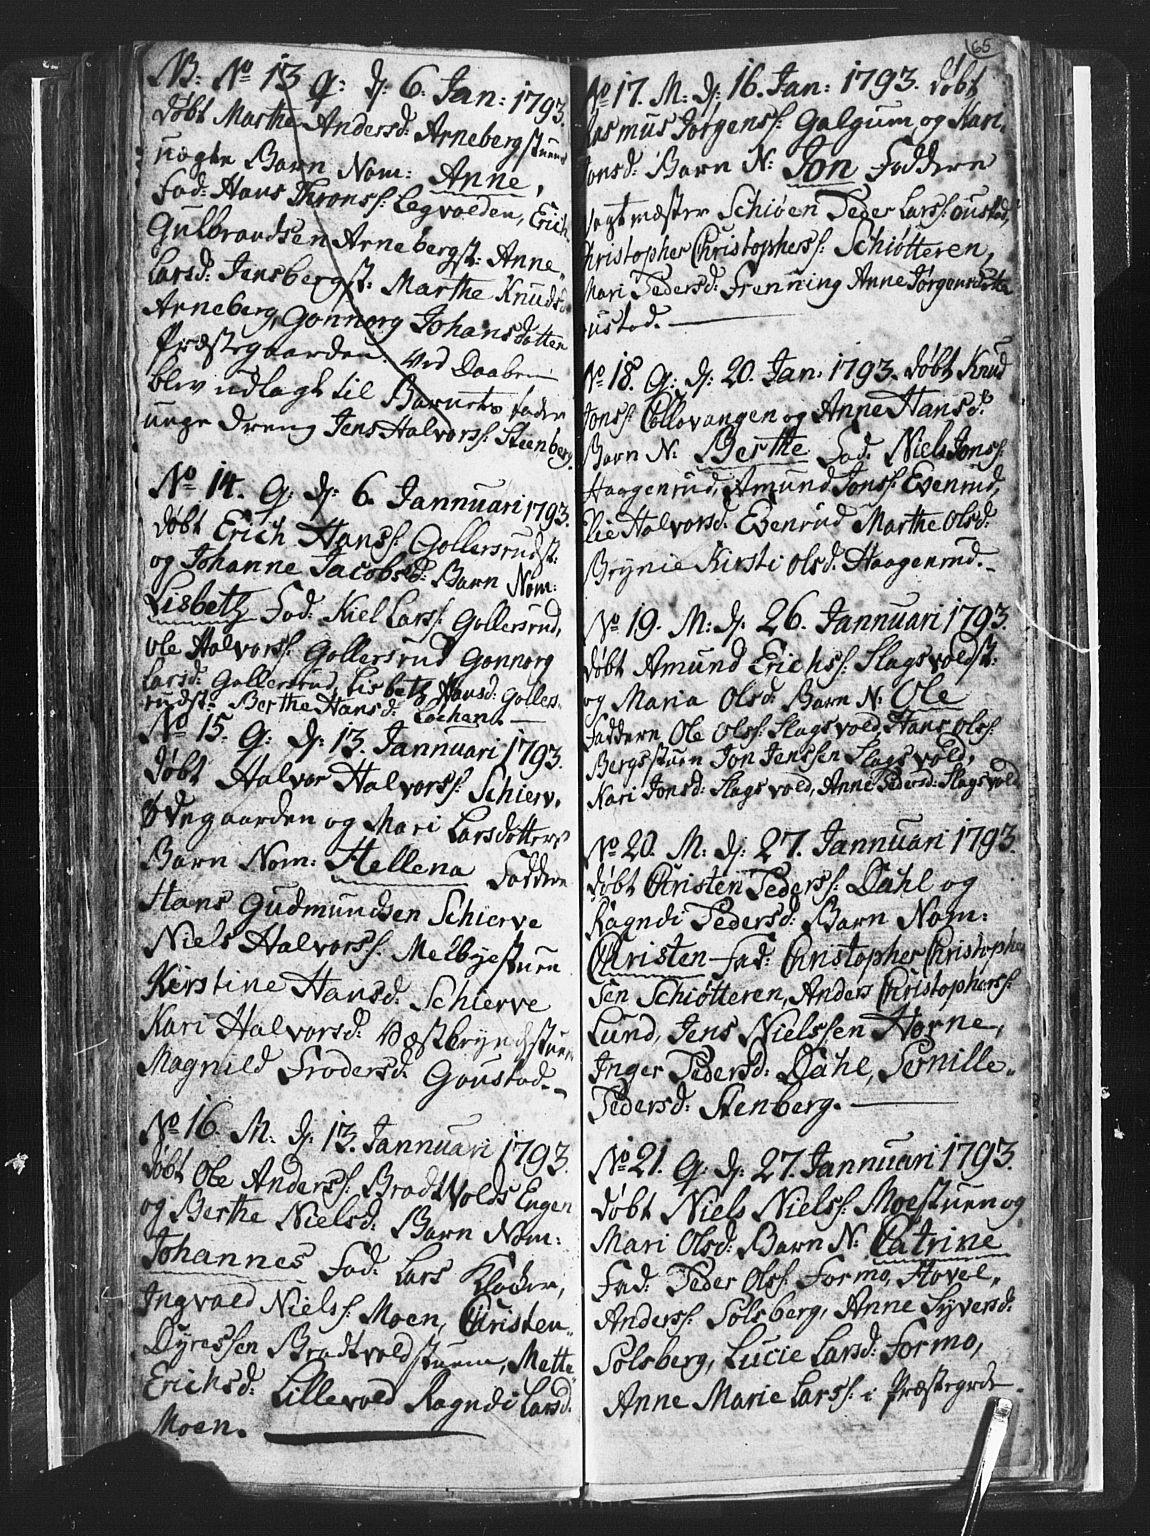 NB: No 13 G: d: 6. Jan: 1793.
døbt Marthe Andersd: Arneberg stuen
uægte Barn Nom: Anne,
Fad: Hans Throns: Legvolden, Erich
Gulbrandsen Arnebergst: Anne
Larsd: Jensbergst: Marthe Knudsd:
Arneberg, Gonnorg Johansdatter
Præstegaarden. Ved Daaben
blev udlagt til Barnets fader
unge dreng Jens Halvors: Steenberg.
No 14. G: d: 6. Jannuari 1793.
døbt Erich Hans: Gollersrudst:
og Johanne Jacobsd: Barn Nom:
Lisbeth Fad: Kiel Lars: Gollersrud,
Ole Halvors: Gollersrud Gonnorg
Larsd: Gollersrud, Lisbeth Hansd: Gollers-
rudst: Berthe Hansd: Lochenb:
No 15. G: d: 13. Jannuari 1793.
døbt Halvor Halvors: Schierv.
Ødegaarden og Mari Larsdotters
Barn Nom: Hellena Faddere
Hans Gudmundsen Schierve
Niels Halvors: Melbyestuen
Kirstine Hansd: Schierve
Kari Halvorsd: Væstbryndstuen
Magnild Frodersd: Goustad.
No 16. M. d: 13. Jannuari 1793.
døbt Ole Anders: Bradtvolds Engen
og Berthe Nielsd: Barn Nom:
Johannes Fad: Lars Klocker,
Ingvold Niels: Moen, Christen
Dyressen Bradtvoldstuen, Mette
Erichsd: Lillevold Ragndi Larsd:
Moen.
65
No 17. M: d: 16. Jan: 1793. døbt
Rasmus Jørgens: Galgum og Kari
Jonsd: Barn N: Jon Faddere
Vagtmæster Schiøen Peder Lars: oustad,
Christopher Christophers: Schiøtteren,
Mari Pedersd: Frenning Anne Jørgensdatter
oustad.
No 18. G: d: 20. Jan: 1793. døbt Knud
Jons: Collovangen og Anne Hansd:
Barn N: Berthe Fad: Niels Jons:
Haagenrud, Amund Jons: Evenrud,
Elie Halvorsd: Evenrud Marthe Olsd:
Brynie Kirsti Olsd: Haagenrud.
No 19. M: d: 26. Jannuari 1793.
døbt Amund Erichs: Slagsvoldst:
og Maria Olsd: Barn N: Ole
Faddere Ole Ols: Slagsvold, Hans Ols:
Bergsstuen Jon Jenssen Slagsvold,
Kari Jonsd: Slagsvold, Anne Pedersd: Slagsvold
No 20. M: d: 27. Jannuari 1793.
døbt Christen Peders: Dahl og
Ragndi Pedersd: Barn Nom:
Christen Fad: Christopher Christopher
sen Schiøtteren, Anders Christophers:
Lund, Jens Nielssen Horne,
Inger Pedersd: Dahl, Pernille
Pedersd: Stenberg.
No 21. G: d: 27. Jannuari 1793.
døbt Niels Niels: Moestuen og
Mari Olsd: Barn N: Catrine
Fad: Peder Ols: Formo, Hovel
Anders: Solsberg, Anne Syversd:
Solsberg, Lucie Larsd: Formo,
Anne Marie Lars: i Præstegrde